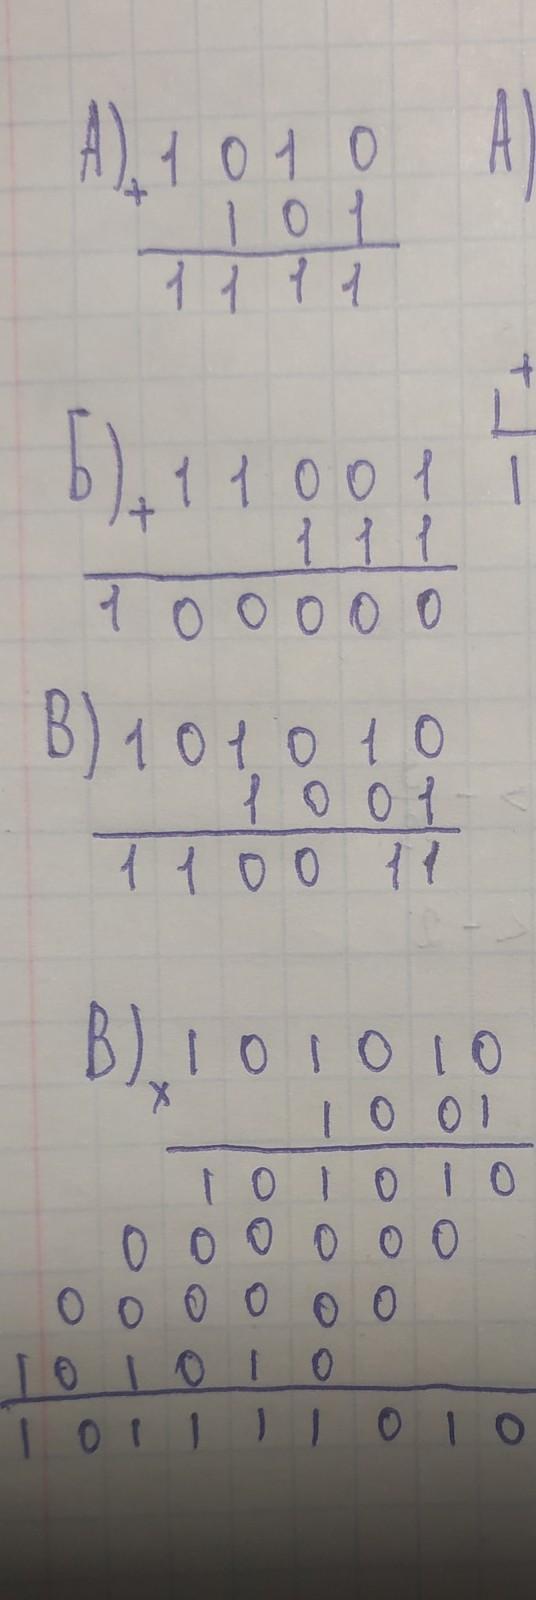 А) 1 0 1 0 А)
+ 1 0 1
1 1 1 1
+
Б) 1 1 0 0 1 1
+ 1 1 1
1 0 0 0 0 0
В) 1 0 1 0 1 0
1 0 0 1
1 1 0 0 1 1
В) 1 0 1 0 1 0
x 1 0 0 1
1 0 1 0 1 0
0 0 0 0 0 0
0 0 0 0 0 0
1 0 1 0 1 0
1 0 1 1 1 1 0 1 0